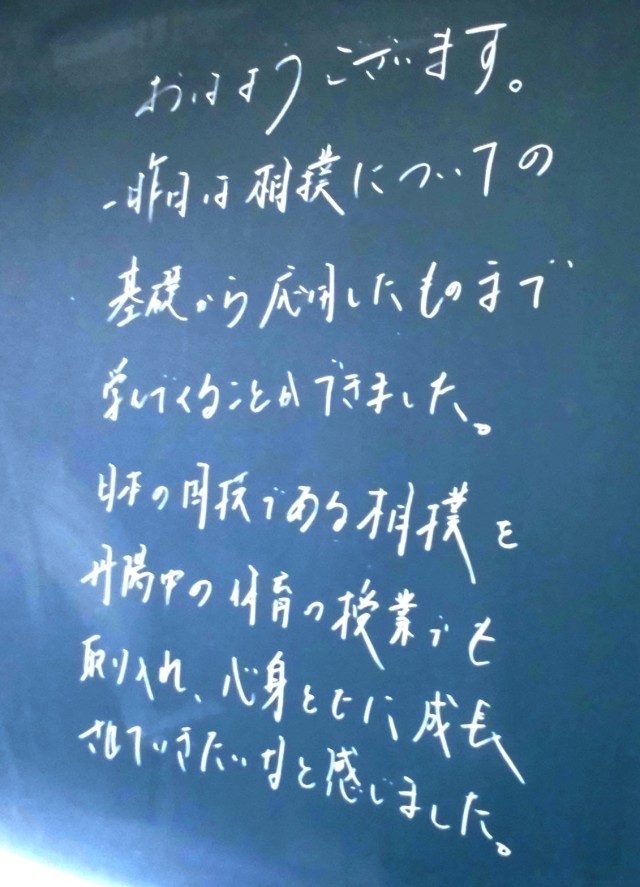 おはようございます。
一昨日は相撲についての
基礎から応用したものまで
学んでくることができました。
日本の国技である相撲を
丹陽中の体育の授業でも
取り入れ、心身ともに成長
させていきたいなと感じました。